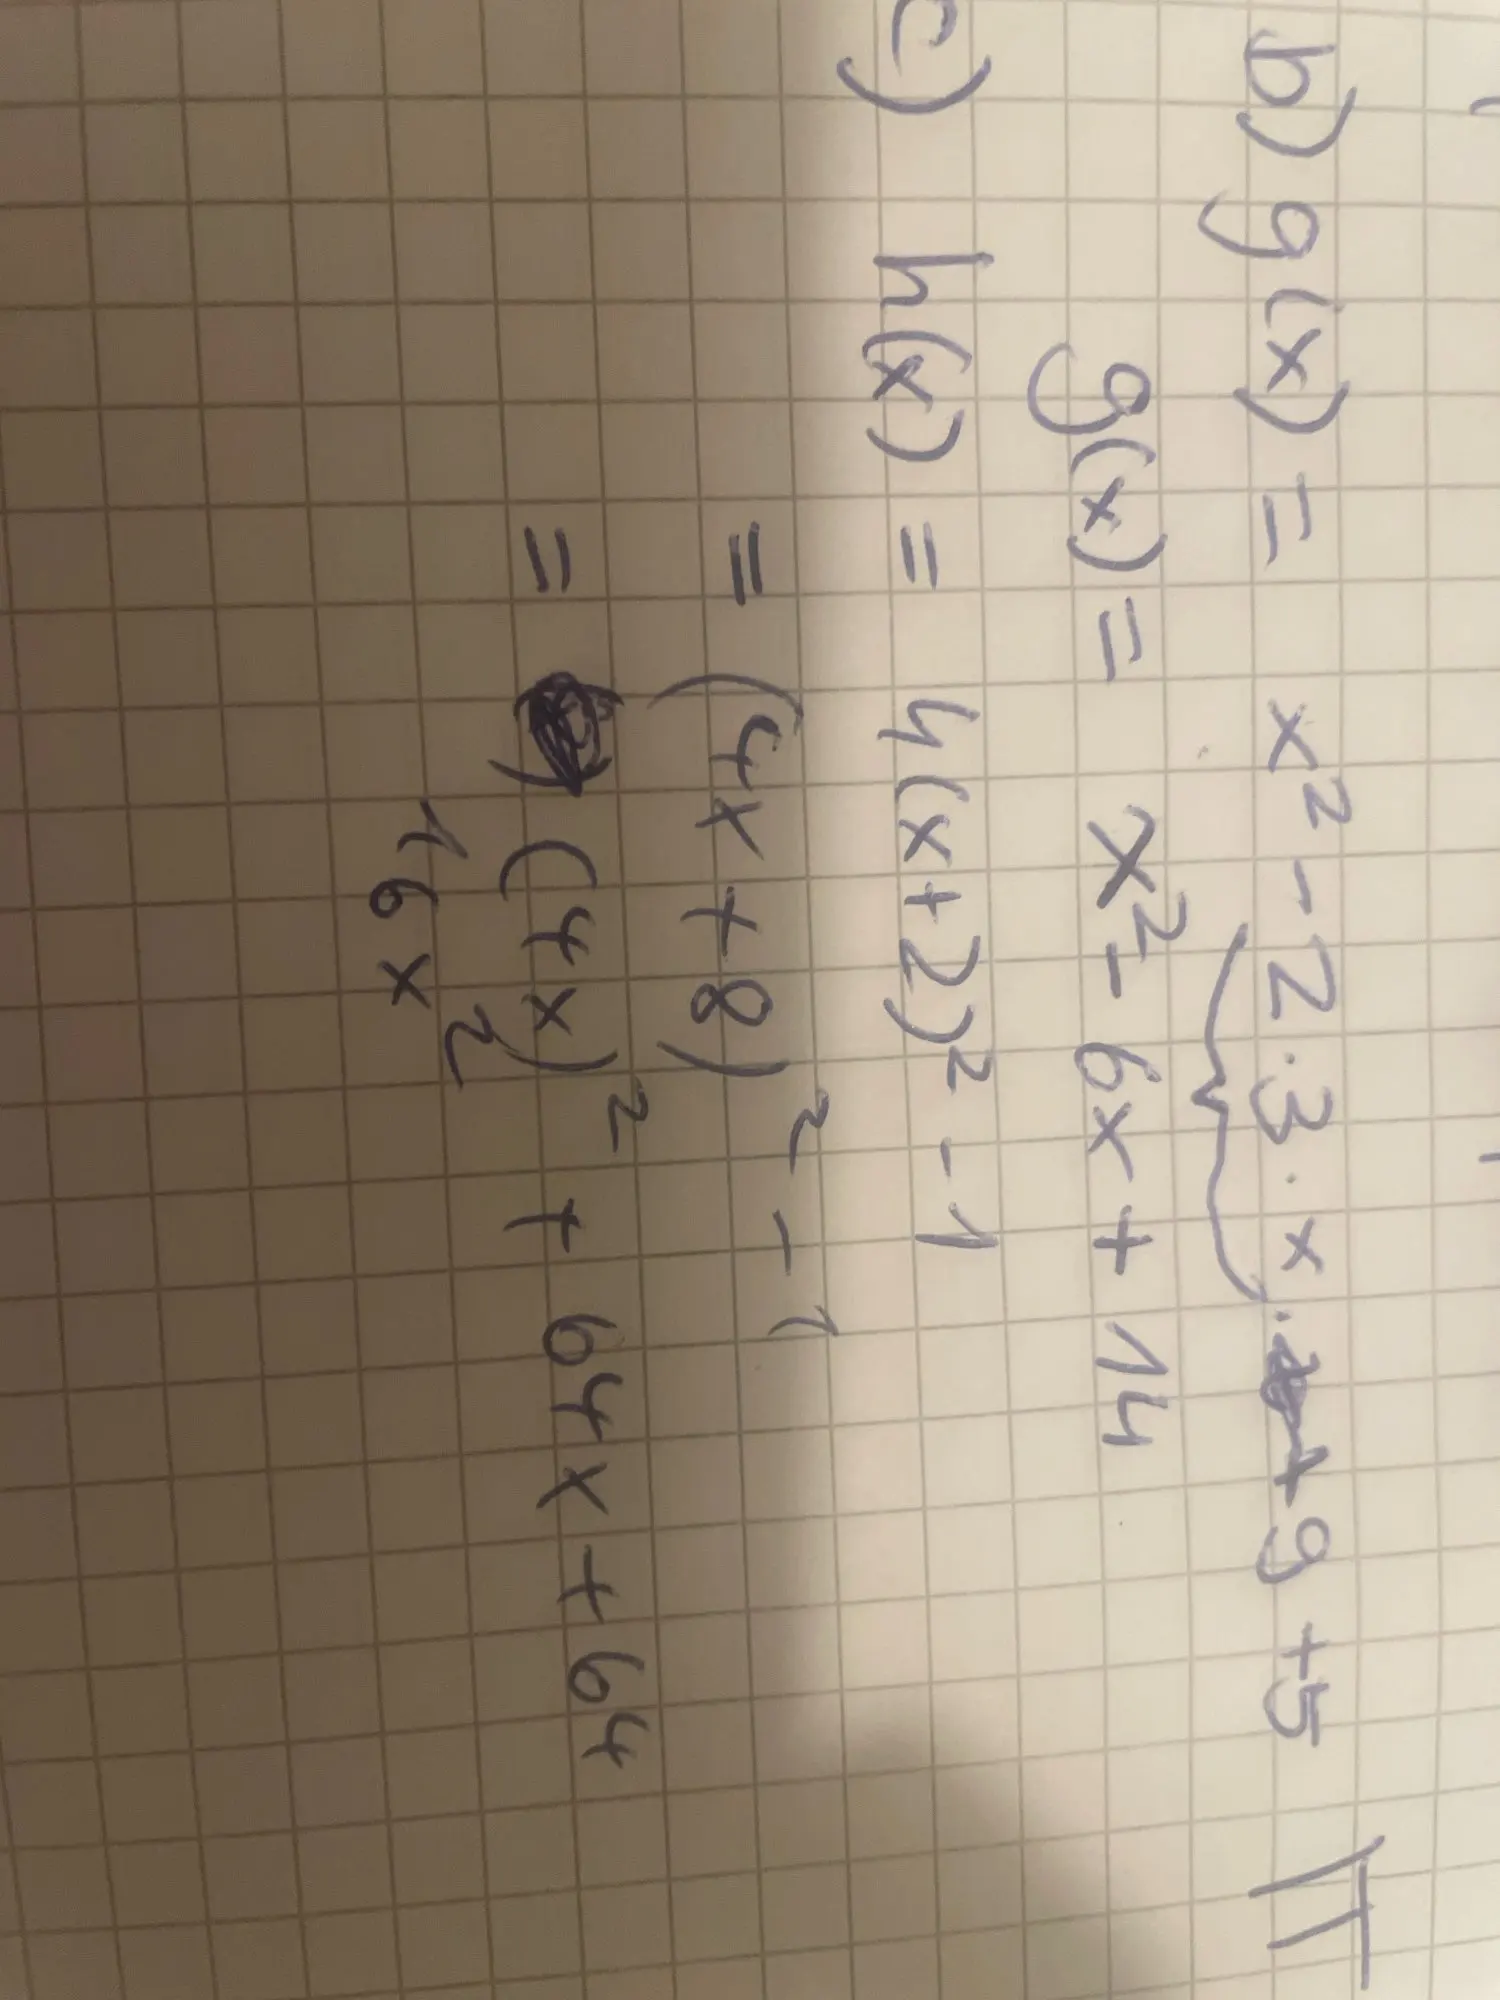 b) g(x) = x² - 2 · 3 · x · + 9 + 5 II
g(x) = x² - 6x + 14
c) h(x) = 4(x+2)² - 1
= (4x + 8)² - 1
= (4x)² + 64x + 64
16x²